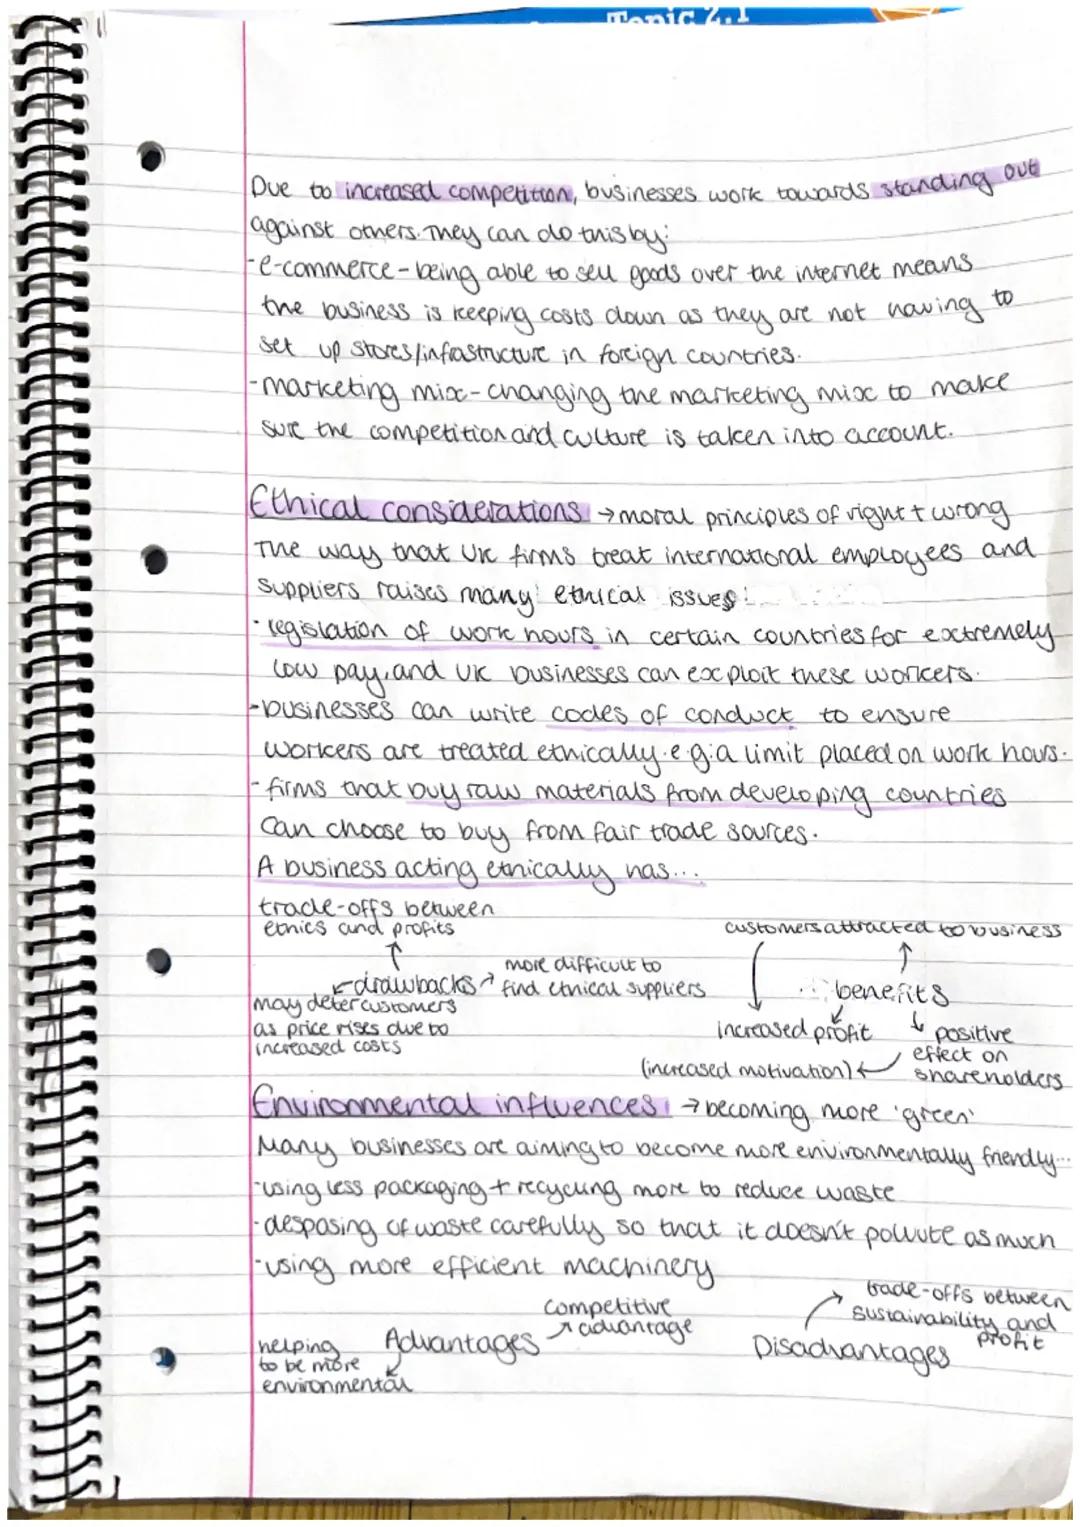 Topic 2.1
Due to increased competition, businesses work towards standing out
against others. They can do this by:
-e-commerce - being able to sell goods over the internet means
the business is keeping costs down as they are not having to
set up stores/infrastructure in foreign countries.
-marketing mix - changing the marketing mix to make
sure the competition and culture is taken into account.
Ethical considerations → moral principles of right + wrong
The way that UK firms treat international employees and
suppliers raises many ethical issues:
·legislation of work hours in certain countries for extremely
low pay, and UK businesses can exploit these workers.
-businesses can write codes of conduct to ensure
workers are treated ethically. e.g: a limit placed on work hours.
-firms that buy raw materials from developing countries
can choose to buy from fair trade sources.
A business acting ethically has...
trade-offs between
ethics and profits
↑
←drawbacks→
more difficult to
find ethical suppliers
may deter customers
as price rises due to
increased costs
customers attracted to business
↓ ↑
benefits
increased profit
↓ positive
effect on
shareholders
(increased motivation) ←
Environmental influences → becoming more 'green'
Many businesses are aiming to become more environmentally friendly...
-using less packaging + recycling more to reduce waste
-desposing of waste carefully so that it doesn't pollute as much
-using more efficient machinery
competitive
advantage
Advantages
helping
to be more
environmental
trade-offs between
sustainability and
profit
Disadvantages